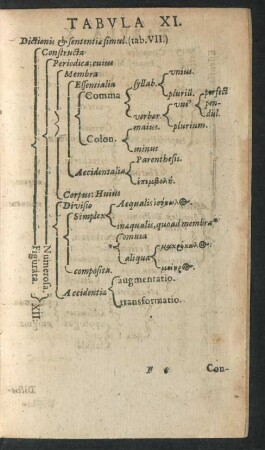 TABVLA XI.
Dictionis & sententiæ simul. (tab. VII.)
Constructa
Periodica; cuius
Membra
Essentialia
Comma
syllab.
unius.
plurib.
verbor.
uni⁹
perfect
pen-
dul.
plurium.
Colon.
maius.
minus
Accidentalia
Parenthesis.
Corpus: Huius
Divisio
Simplex
Aequalis
inæqualis, quoad membra
omnia
aliqua
composita.
Accidentia
augmentatio.
transformatio.
Numerosa.
Figurata. XII.
Con-